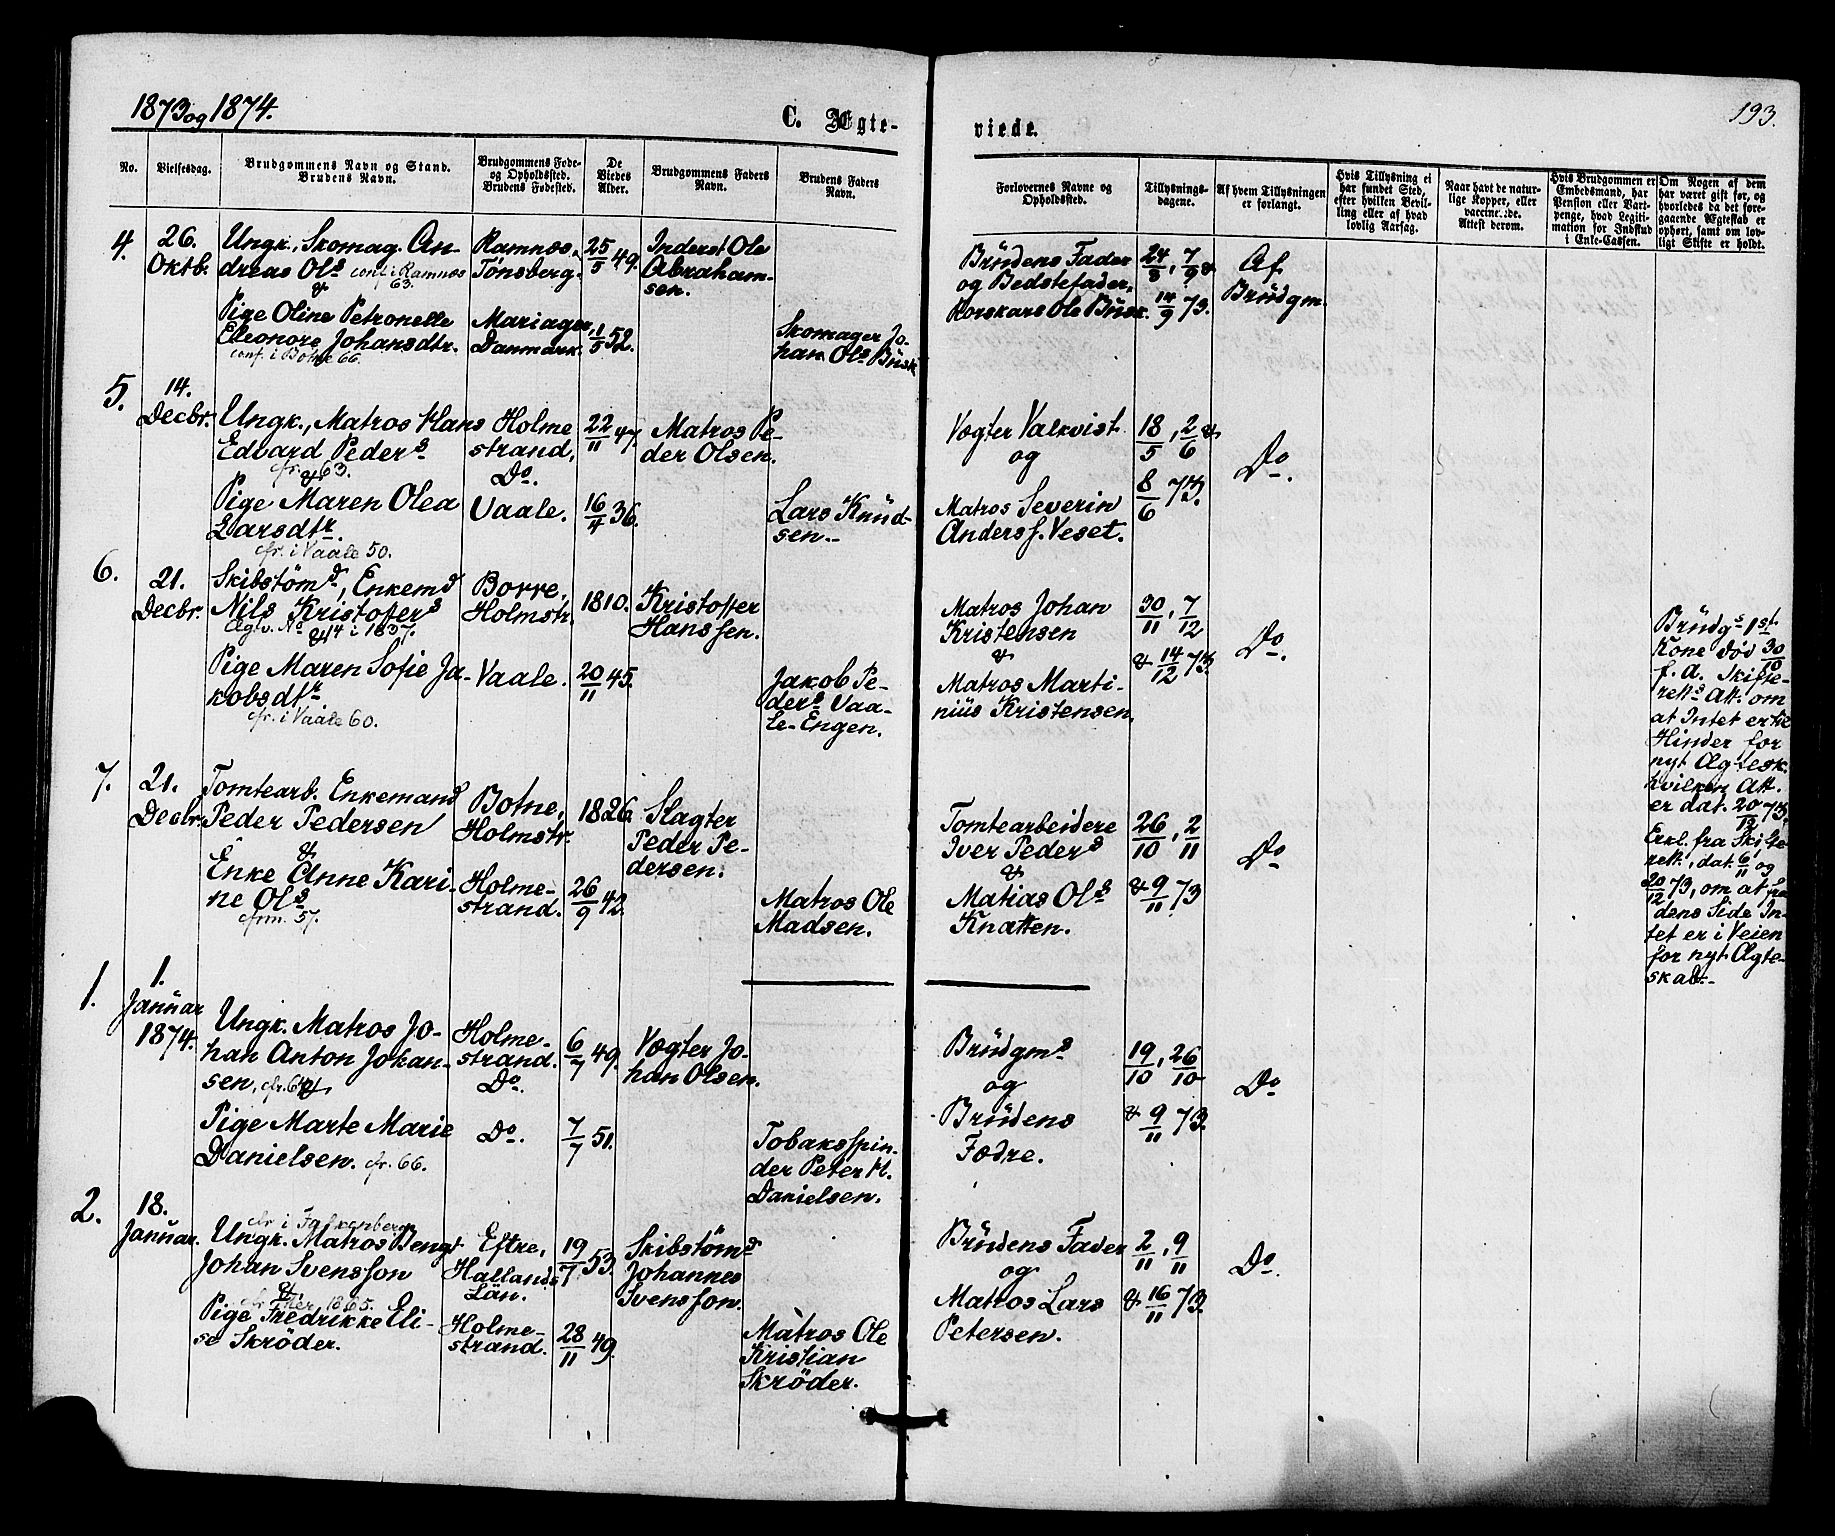 1873 og 1874.
C. Ægte-
viede.
193.
No.
Vielsesdag.
Brudgommens Navn og Stand.
Brudens Navn.
Brudgommens Føde-
og Opholdssted.
Brudens Fødested.
De
Viedes
Alder.
Brudgommens Faders
Navn.
Brudens Faders
Navn.
Forlovernes Navne og
Opholdssted.
Tillysnings-
dagene.
Af hvem Tillysningen
er forlangt.
Hvis Tillysning ei
har fundet Sted,
efter hvilken Bevil-
ling eller af hvad
lovlig Aarsag.
Naar havt de natur-
lige Kopper, eller
vaccinerede.
Attest derom.
Hvis Brudgommen er
Embedsmand, har
Pension eller Vart-
penge, hvad Legiti-
mation for Indskud
i Enke-Cassen.
Om Nogen af dem
har været gift før, og
hvorledes da det fore-
gaaende Ægteskab er
ophørt, samt om lov-
ligt Skifte er holdt.
4.
26.
Oktb.
Ungk., Skomag. An-
dreas Ols conf. i Ramnæs
63.
&
Pige Oline Petronelle
Eleonore Johansdtr.
conf. i Botne 66.
Ramnæs,
Tønsberg.
Mariager,
Danmark.
25/5 49.
1/5 52.
Inderst Ole
Abraham-
sen.
Skomager Jo-
han Ols Busk
Brudens Fader
og Bedstefader,
Korskars Ole Busk.
24/8, 7/9 &
14/9 73.
Af
Brudgm.
5.
14.
Decbr.
Ungk., Matros Hans
Edvard Peders
cfr. 63.
&
Pige Maren Olea
Larsdtr.
cfr. i Vaale 50.
Holme
strand,
Do.
Vaale.
22/11 47.
16/4 36.
Matros Pe-
der Olsen.
Lars Knud-
sen.
Vægter Valkvist
og
Matros Severin
Anderss. Veset.
18/5, 2/6 &
8/6 73.
Do.
6.
21.
Decbr.
Skibstømd, Enkemd
Nils Kristofers
Ægv. No 14 i 1837.
&
Pige Maren Sofie Ja-
kobsdtr.
cfr. i Vaale 60.
Borre,
Holmstr.
Vaale.
1810.
20/11 45.
Kristoffer
Hanssen.
Jakob Pe-
ders Vaa-
le-Engen.
Matros Johan
Kristensen
&
Matros Marti-
nius Kristensen.
30/11, 7/12
& 14/12 73.
Do.
Brudgs 1st
Kone død 30/10
f. A. Skifte-
retts Att. om
at Intet er til
Hinder for
nyt Ægtesk.
hvilken Att.
er dat. 20/12 73.
7.
21.
Decbr.
Tomtearb. Enkemand
Peder Pedersen
&
Enke Anne Kari-
ne Ols
cfrm. 57.
Botne,
Holmstr.
Holme-
strand.
1826.
26/9 42.
Slagter
Peder Pe-
dersen.
Matros Ole
Madsen.
Tomtearbeidere
Iver Peders
&
Matias Ols
Knatten.
26/10, 2/11
& 9/11 73
Do
Erkl. fra Skifte-
rett., dat. 6/11 og
20/12 73, om at fra
dens Side In-
tet er i Veien
for nyt Ægte-
skab.-
1.
1.
Januar
1874.
Ungk. Matros Jo-
han Anton Johan-
sen, cfr. 64.
&
Pige Marte Marie
Danielsen. cfr. 66.
Holme-
strand.
Do.
Do.
6/7 49.
7/7 51.
Vægter Jo-
han Olsen.
Tobaksspin-
der Peter H.
Danielsen.
Brudgms
og
Brudens
Fædre.
19/10, 26/10
& 9/11 73.
Do
2.
18.
Januar.
cfr. i Falkenberg
Ungk. Matros Bengt
Johan Svensson
&
cfr. her 1865.
Pige Fredrikke Eli-
se Skröder.
Eftre,
Hallands
Län.
Holme-
strand.
19/7 53.
28/11 49.
Skibstømd
Johannes
Svensson.
Matros Ole
Kristian
Skröder.
Brudens Fader
og
Matros Lars
Petersen.
2/11, 9/11
& 16/11 73.
Do.